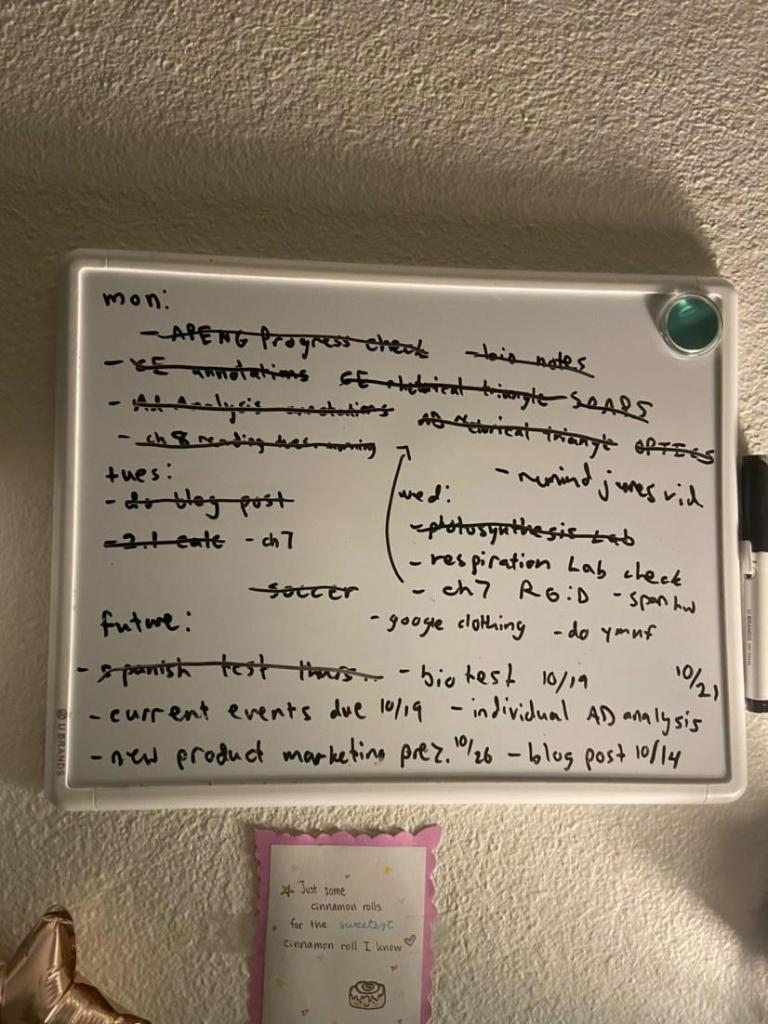 mon:
- APENG Progress check - bio notes
- CE annotations CE rhetorical triangle SOAPS
- AD Analysis annotations AD rhetorical triangle OPTICS
- ch 8 reading tues. morning
- remind james vid
tues:
- do blog post
- 2.1 calc - ch7
soccer
wed:
- photosynthesis Lab
- respiration Lab check
- ch7 RG:D - span hw
- google clothing - do
future:
- spanish test thurs.
- bio test 10/19
- current events due 10/19 - individual AD analysis 10/21
- new product marketing prez. 10/26 - blog post 10/14
U BRANDS
U BRANDS
Just some
cinnamon rolls
for the sweetest
cinnamon roll I know